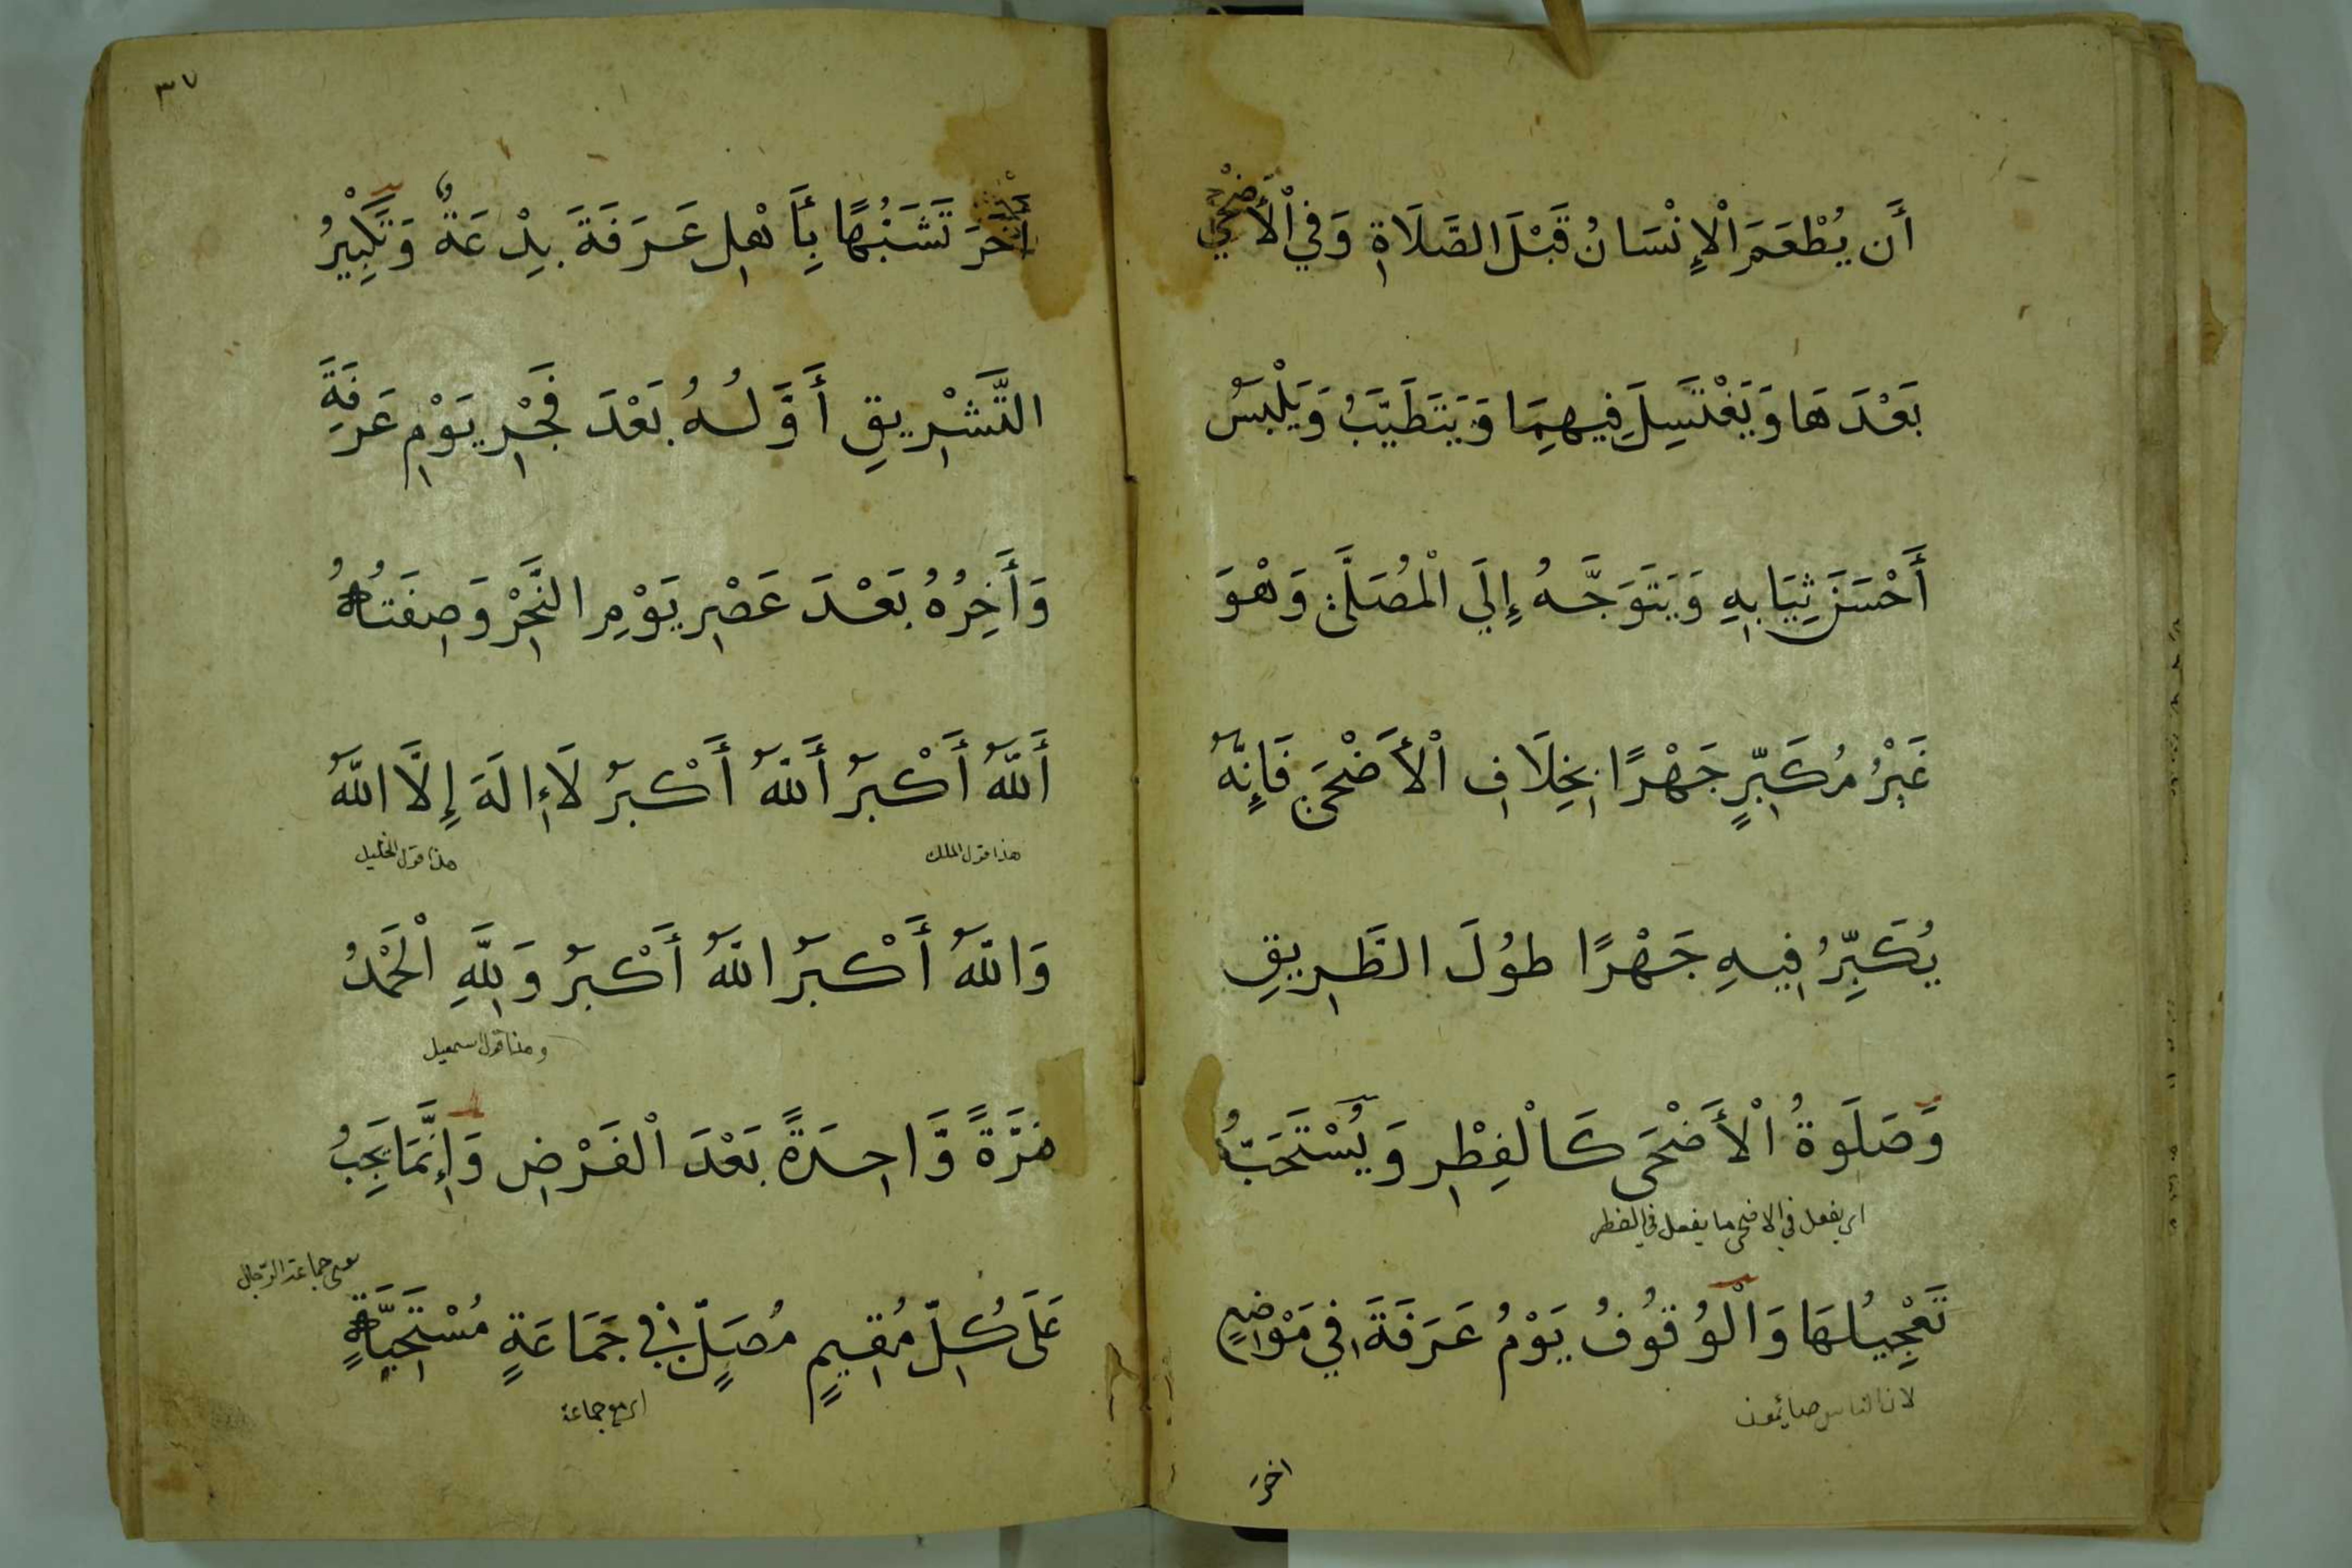 أَن يُطْعَمَ الْإِنْسَانُ قَبْلَ الصَّلَاةِ وَفِي الْأَضْحَى
بَعْدَهَا وَيَغْتَسِلَ فِيهِمَا وَيَتَطَيَّبُ وَيَلْبَسُ
أَحْسَنَ ثِيَابِهِ وَيَتَوَجَّهُ إِلَي الْمُصَلَّى وَهْوَ
غَيْرُ مُكَبِّرٍ جَهْرًا بِخِلَافِ الْأَضْحَى فَإِنَّهُ
يُكَبِّرُ فِيهِ جَهْرًا طُولَ الطَّرِيقِ
وَصَلَوةُ الْأَضْحَى كَالْفِطْرِ وَيُسْتَحَبُّ
اى يفعل في الاضحى ما يفعل في الفطر
تَعْجِيلُهَا وَالْوُقُوفُ يَوْمُ عَرَفَةَ فِي مَوْاضِعٍ
لان الناس صايمون
اخر
٣٧
أُخَرَ تَشَبُّهًا بِأَهْلِ عَرَفَةَ بِدْعَةٌ وَتَكْبِيْرُ
التَّشْرِيقِ أَوَّلُهُ بَعْدَ فَجْرِ يَوْمِ عَرَفَةَ
وَأَخِرُهُ بَعْدَ عَصْرِ يَوْمِ النَّحْرِ وَصِفَتُهُ
أَللّٰهُ أَكْبَرُ أَللّٰهُ أَكْبَرُ لَاإِلَهَ إِلَّا اللّٰهُ
هذا قول الملك هذا قول الخليل
وَاللّٰهُ أَكْبَرُ اللّٰهُ أَكْبَرُ وَلِلَّهِ الْحَمْدُ
وهذا قول اسمعيل
مَرَّةً وَّاحِدَةً بَعْدَ الْفَرْضِ وَإِنَّمَا يَجِبُ
جماعة الرجال
عَلَى كُلِّ مُقِيمٍ مُصَلٍّ فِي جَمَاعَةٍ مُسْتَحَبَّةٍ
اى مع جماعة